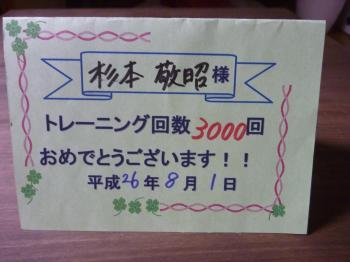 杉本 敬昭様
トレーニング回数3000回
おめでとうございます！！
平成26年8月1日